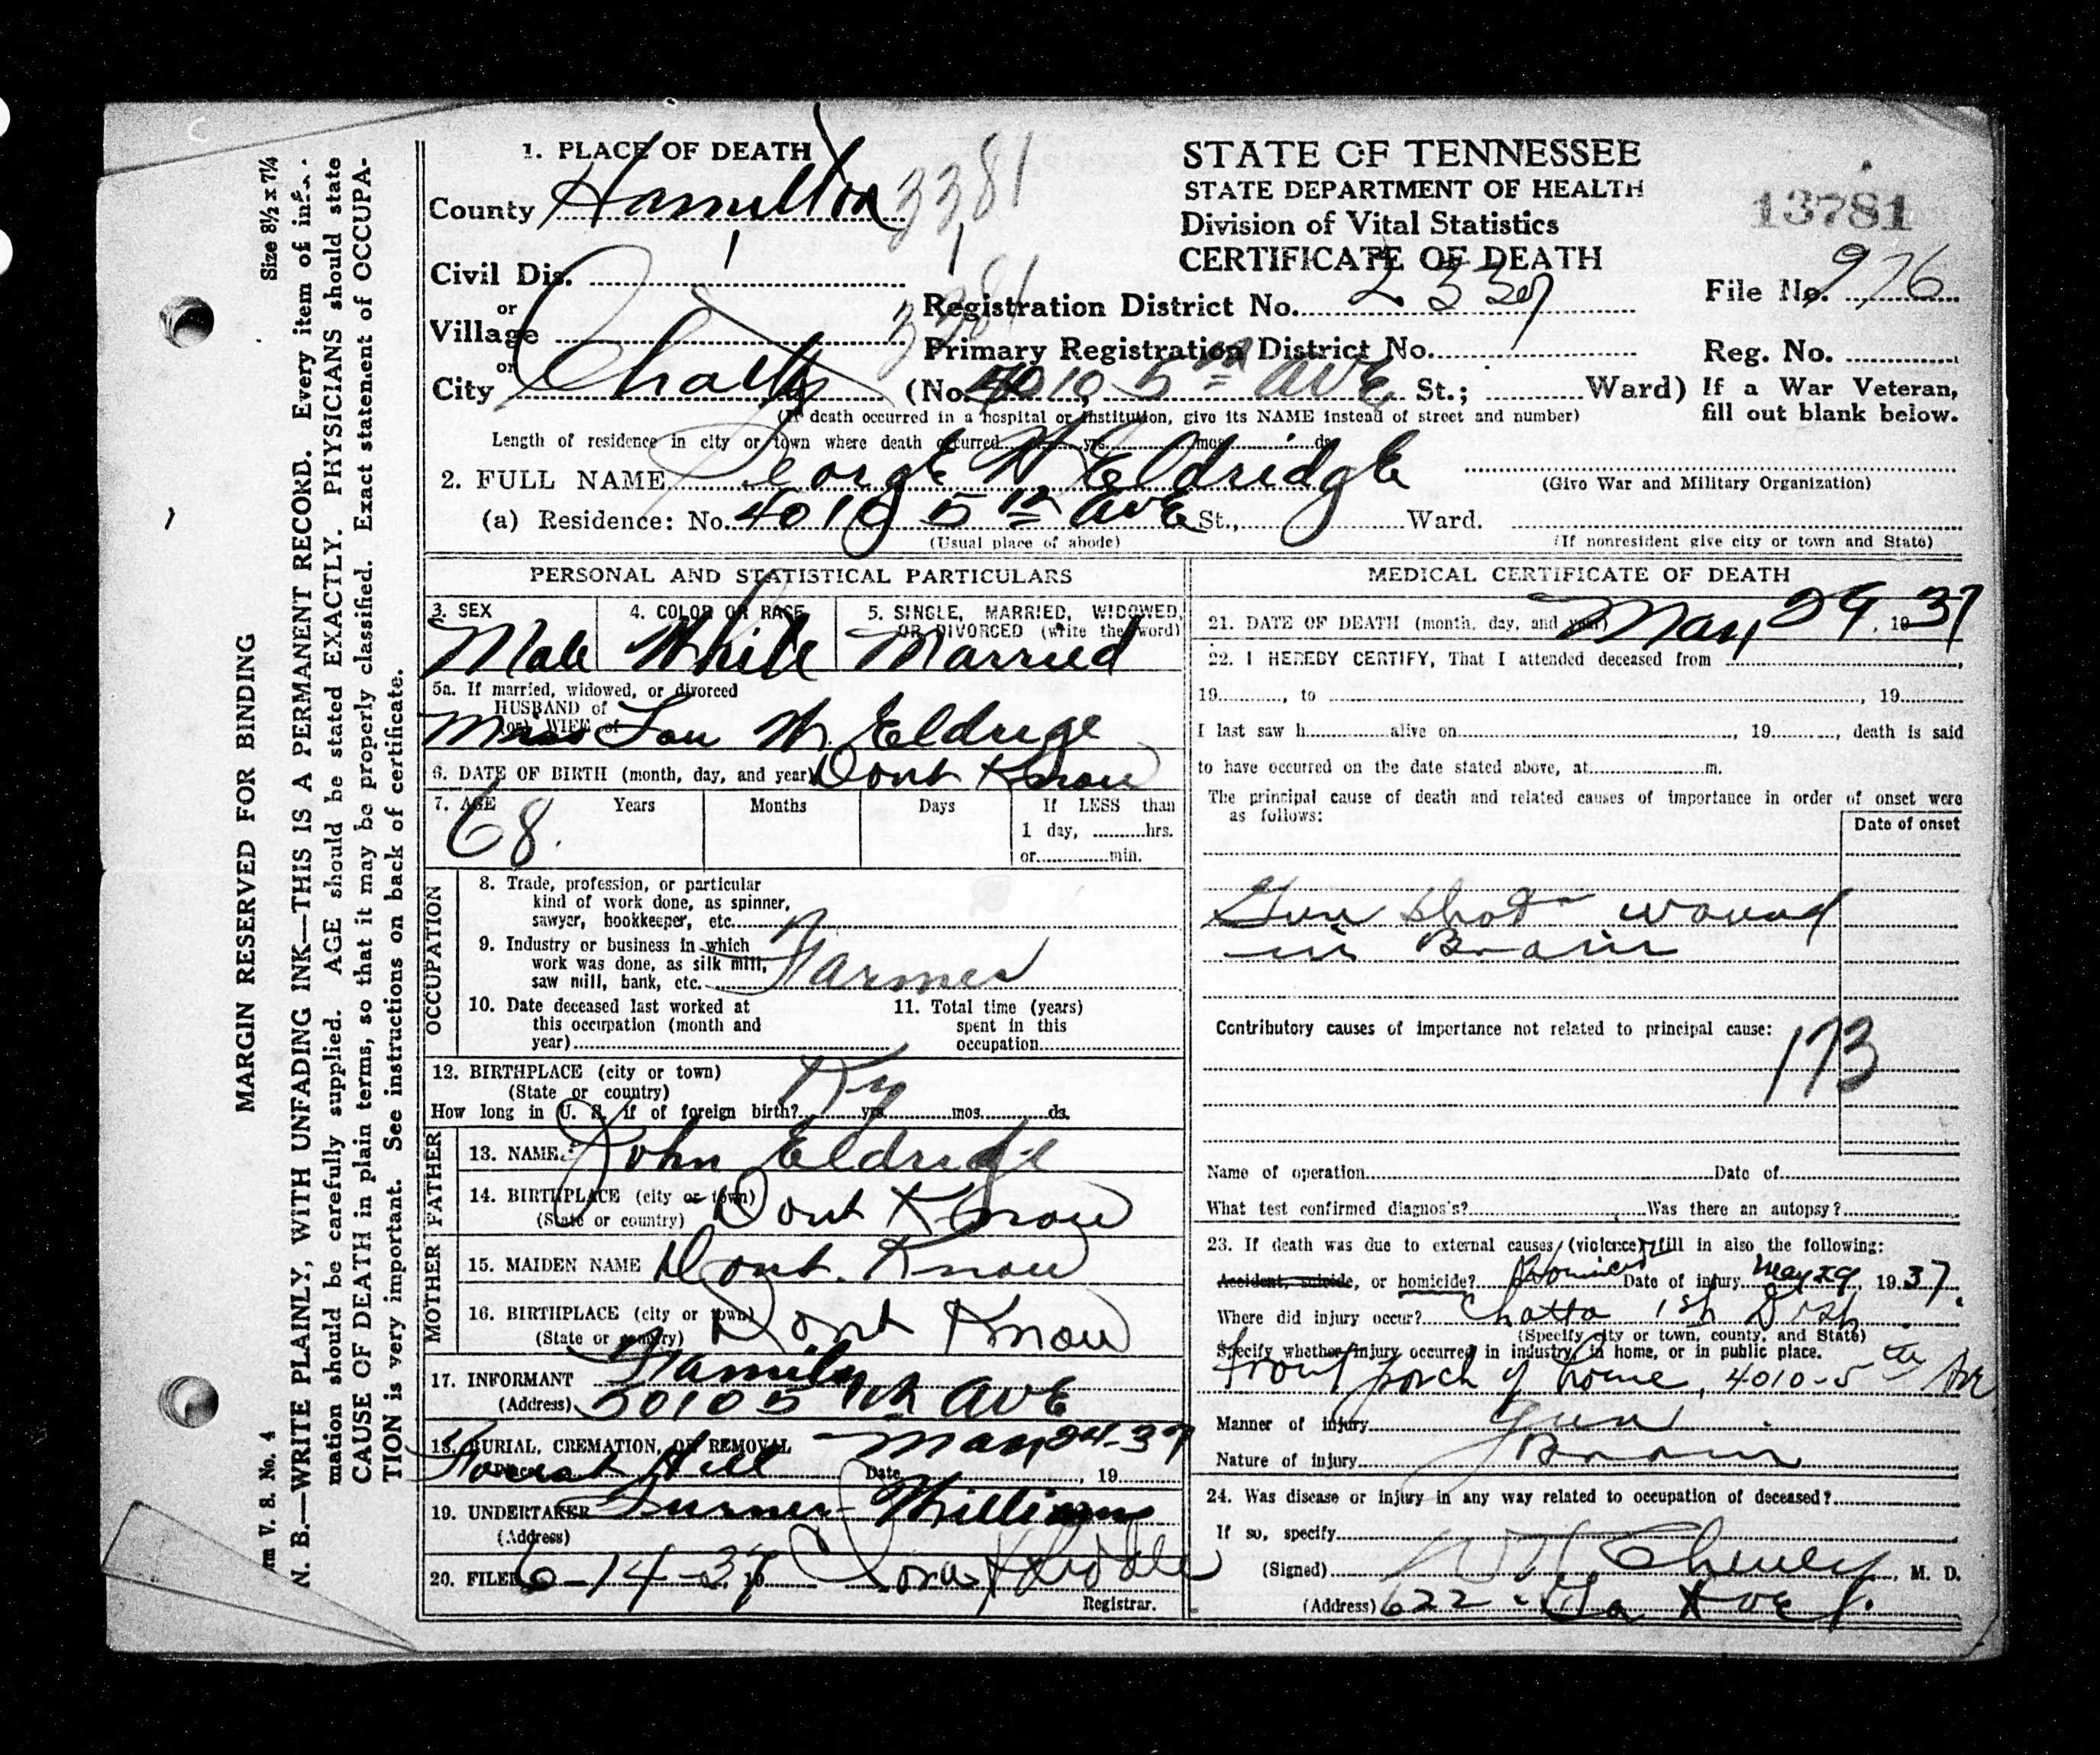 MARGIN RESERVED FOR BINDING
Size 8½ x 7¼
rm V. S. No. 4
N. B.—WRITE PLAINLY, WITH UNFADING INK—THIS IS A PERMANENT RECORD. Every item of inf
mation should be carefully supplied. AGE should be stated EXACTLY. PHYSICIANS should state
CAUSE OF DEATH in plain terms, so that it may be properly classified. Exact statement of OCCUPA-
TION is very important. See instructions on back of certificate.
1. PLACE OF DEATH
County Hamilton
3381
Civil Dis.
or
Village
3381
or
City Chatta
STATE OF TENNESSEE
STATE DEPARTMENT OF HEALTH
Division of Vital Statistics
CERTIFICATE OF DEATH
13781
Registration District No.
File No. 976
Primary Registration District No.
Reg. No.
(No. 4010 5th AVE St.; Ward)
If a War Veteran,
fill out blank below.
(If death occurred in a hospital or institution, give its NAME instead of street and number)
Length of residence in city or town where death occurred yrs. mos. ds.
2. FULL NAME George W Eldridge
(Give War and Military Organization)
(a) Residence: No. 4010 5th AVE St., Ward.
(Usual place of abode)
(If nonresident give city or town and State)
PERSONAL AND STATISTICAL PARTICULARS
3. SEX
Male
4. COLOR OR RACE
White
5. SINGLE, MARRIED, WIDOWED, OR DIVORCED (write the word)
Married
5a. If married, widowed, or divorced
HUSBAND of
(or) WIFE of
Mrs Lou W. Eldrige
6. DATE OF BIRTH (month, day, and year) Dont Know
7. AGE Years Months Days If LESS than
68.
1 day, hrs.
or min.
OCCUPATION
8. Trade, profession, or particular
kind of work done, as spinner,
sawyer, bookkeeper, etc.
9. Industry or business in which
work was done, as silk mill,
saw mill, bank, etc. Farmer
10. Date deceased last worked at
this occupation (month and
year)
11. Total time (years)
spent in this
occupation
12. BIRTHPLACE (city or town)
(State or country) Ky
How long in U. S. if of foreign birth? yrs. mos. ds.
FATHER
13. NAME John Eldridge
14. BIRTHPLACE (city or town)
(State or country) Dont Know
MOTHER
15. MAIDEN NAME Dont Know
16. BIRTHPLACE (city or town)
(State or country) Dont Know
17. INFORMANT Family
(Address) 5010 5 th AVE
18. BURIAL, CREMATION, OR REMOVAL
Place Forest Hill Date May 24-37, 19
19. UNDERTAKER Turner Williams
(Address)
20. FILED 6-14-37 19
Registrar.
MEDICAL CERTIFICATE OF DEATH
21. DATE OF DEATH (month, day, and year) May 29, 1937
22. I HEREBY CERTIFY, That I attended deceased from
19, to , 19
I last saw h alive on , 19, death is said
to have occurred on the date stated above, at m.
The principal cause of death and related causes of importance in order of onset were
as follows:
Date of onset
Gun shot wound
in Brain
Contributory causes of importance not related to principal cause:
173
Name of operation Date of
What test confirmed diagnosis? Was there an autopsy?
23. If death was due to external causes (violence) fill in also the following:
Accident, suicide, or homicide? Homicide Date of injury May 29, 1937.
Where did injury occur? Chatta 1st Dist.
(Specify city or town, county, and State)
Specify whether injury occurred in industry, in home, or in public place.
Front porch of home, 4010-5th Ave
Manner of injury Gun
Nature of injury Brain
24. Was disease or injury in any way related to occupation of deceased?
If so, specify
(Signed) , M. D.
(Address) 622 Ga Ave